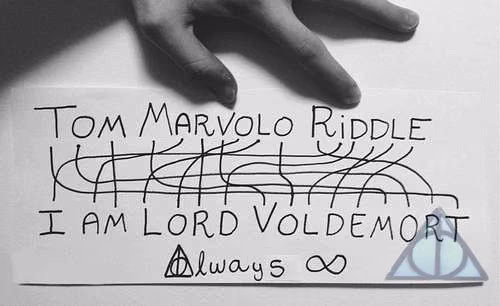 TOM MARVOLO RIDDLE
I AM LORD VOLDEMORT
Always ∞